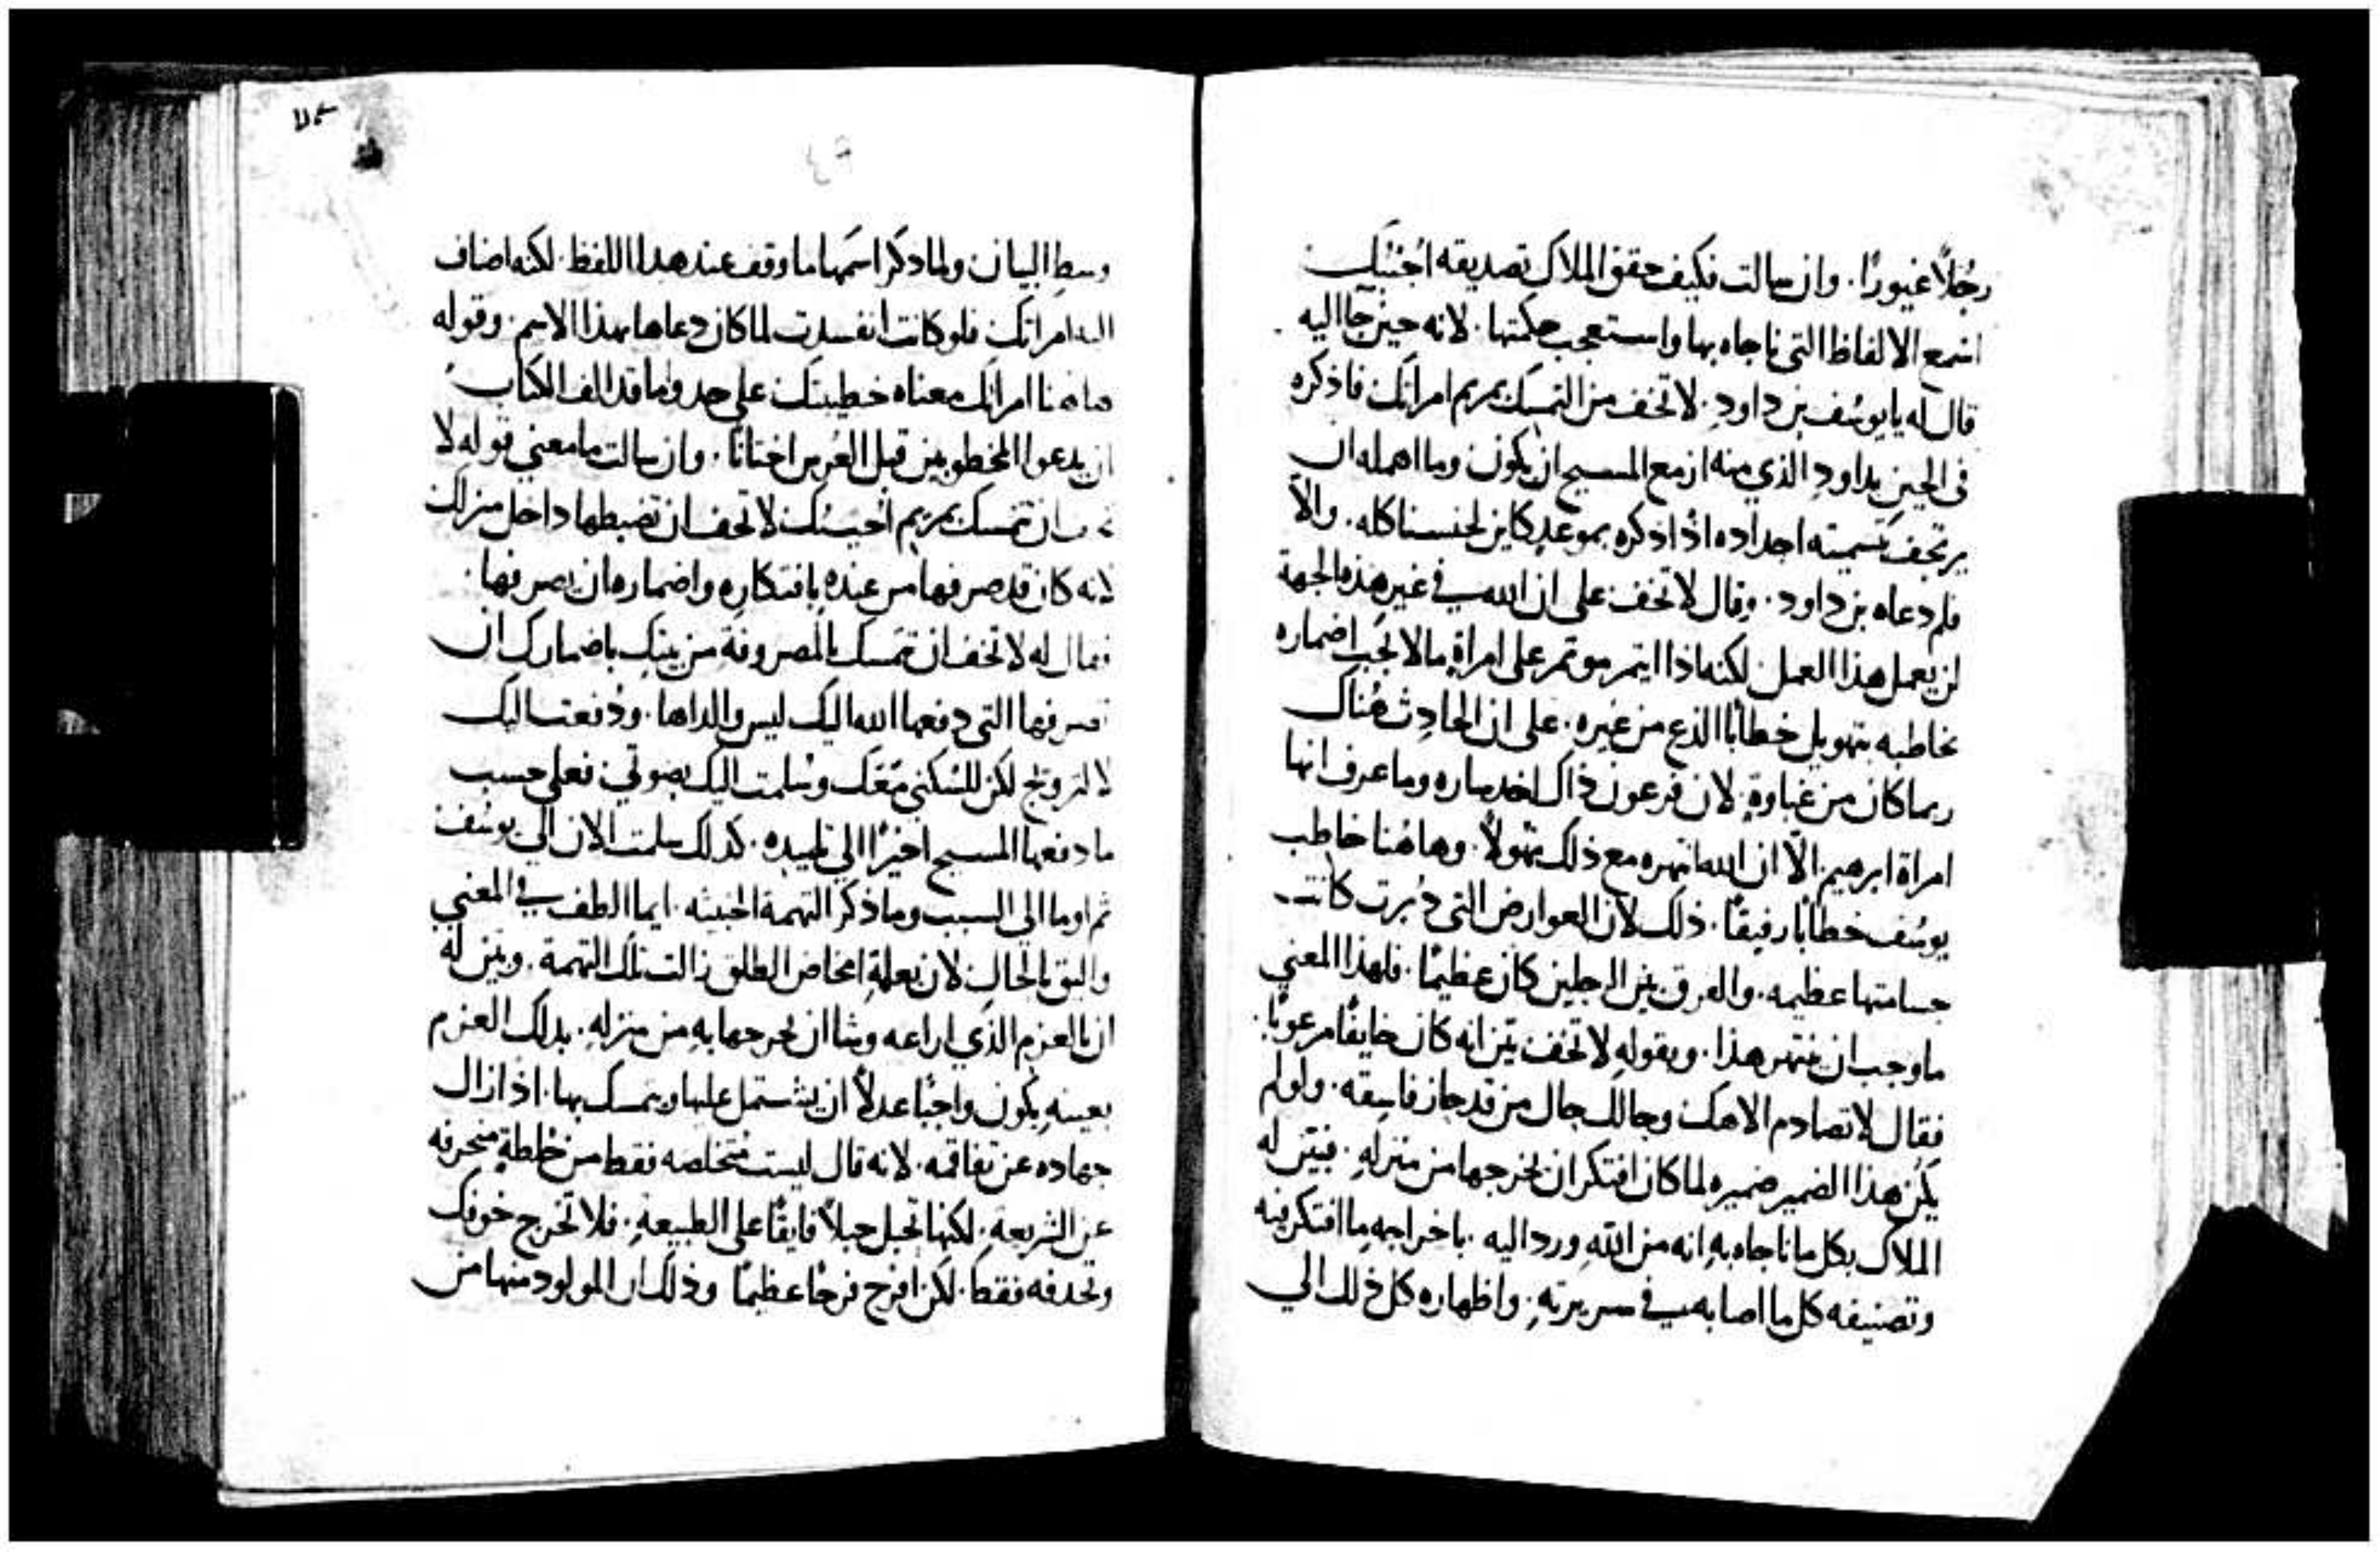 رجُلاً غيورًا. وان سالت فكيف حقق الملاك تصديقه اجبتك
اسمع الالفاظ التى ناجاه بها واستعجب حكمتها. لانه حين جا اليه
قال له يا يوسُف بن داود. لا تخف من التمسك بمريم امراتك فاذكره
فى الحين بداود الذي منه ازمع المسيح ان يكون وما اهمله ان
يرتجف بتسميته اجداده اذ اذكره بموعدٍ كاين لجنسنا كله. والاّ
فلم دعاه بن داود. وقال لا تخف على ان الله في غير هذه الجهة
لن يعمل هذا العمل لكنه اذا ايتمر موتمر على امراةٍ ما لا يجب اضماره
يخاطبه بتهويل خطابًا الذع من غيره. على ان الحادث هُناك
ربما كان من غباوةٍ. لان فرعون ذاك اخد ساره وما عرف انها
امراة ابرهيم. الاّ ان الله انتهره مع ذلك بتهولٍ. وهاهُنا خاطب
يوسُف خطابًا رفيقًا. ذلك لان العوارض التى دُبرت كانت
جسامتها عظيمه. والفرق بين الرجلين كان عظيمًا. فلهذا المعني
ما وجب ان ينتهر هذا. وبقوله لا تخف بين انه كان خايفًا مرعوبًا.
فقال لا تصادم الاهك وحالك حال من قد حاز فاسقه. ولو لم
يكُن هذا الضمير ضميره لما كان افتكر ان يخرجها من منزلهِ. فبين له
الملاك بكل ما ناجاه بهِ انه من اللهِ ورد اليه. باخراجه ما افتكر فيه
وتصنيفه كل ما اصابه في سريرتهِ. واظهاره كل ذلك الي
وسط البيان ولما دكر اسمها ما وقف عند هدا اللفظ. لكنه اضاف
اليه امراتك فلو كانت انفسدت لما كان دعاها بهذا الاسم. وقوله
هاهنا امراتك معناه خطيبتك على حدو ما قد الف الكتاب
ان يدعوا المخطوبين قبل العُرس اختانًا. وان سالت ما معني قوله لا
تخف ان تمسك بمريم اجبتُك لا تخف ان تضبطها داخل منزلك
لانه كان قد صرفها من عنده بافتكاره واضماره ان يصرفها.
فقال له لا تخف ان تمسك بالمصروفة من بيتك باضمارك ان
تصرفها التى دفعها الله اليك ليس والداها. ودُفعت اليك
لا لتزويج لكن للسُكنى معك وسُلمت اليك بصوتي. فعلى حسب
ما دفعها المسيح اخيرًا الي تلميده. كدلك سلمت الان الي يوسُف
ثم اوما الي السبب وما ذكر التهمة الخبيثه. ايما الطف في المعني
واليق بالحال لان بعلةِ امخاض الطلق زالت تلك التهمة. وبين له
ان بالعزم الذي اراعه وشا ان يخرجها بهِ من منزلهِ. بدلك العزم
بعينهِ يكون واجبًا عدلاً ان يشتمل عليها ويتمسك بها. اذ ازال
جهاده عن تفاقمه. لانه قال ليست متخلصه فقط من خلطةٍ منحرفه
عن الشريعةِ. لكنها تحبل حبلاً فايقًا على الطبيعةِ. فلا تخرج خوفك
وتحدفه فقط. لكن افرح فرحًا عظيمًا وذلك ان المولود منها من